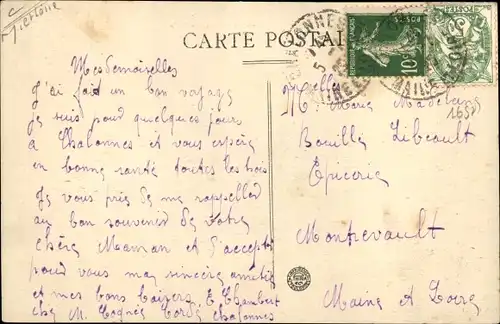 CARTE POSTALE
Mesdemoiselles
J'ai fait un bon voyage
je suis pour quelques jours
a Chalonnes et vous espère
en bonne santé toutes les trois
Je vous prie de me rappeller
au bon souvenir de votre
chère Maman et d'accepter
pour vous mes sincères amitiés
et mes bons baisers E. Chambert
chez M. Cognée Chalonnes
Melle Marie Madeleine
Bouillé Libeault
Epicerie
Montrevault
Maine et Loire
POSTES
10